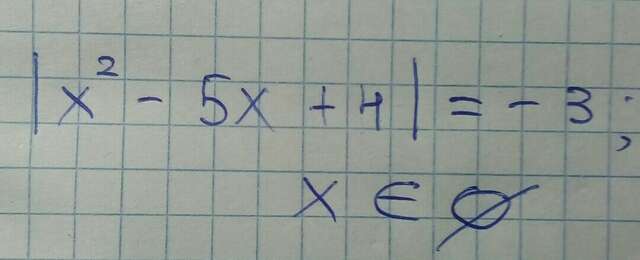 |x² - 5x + 4| = -3;
x ∈ ∅